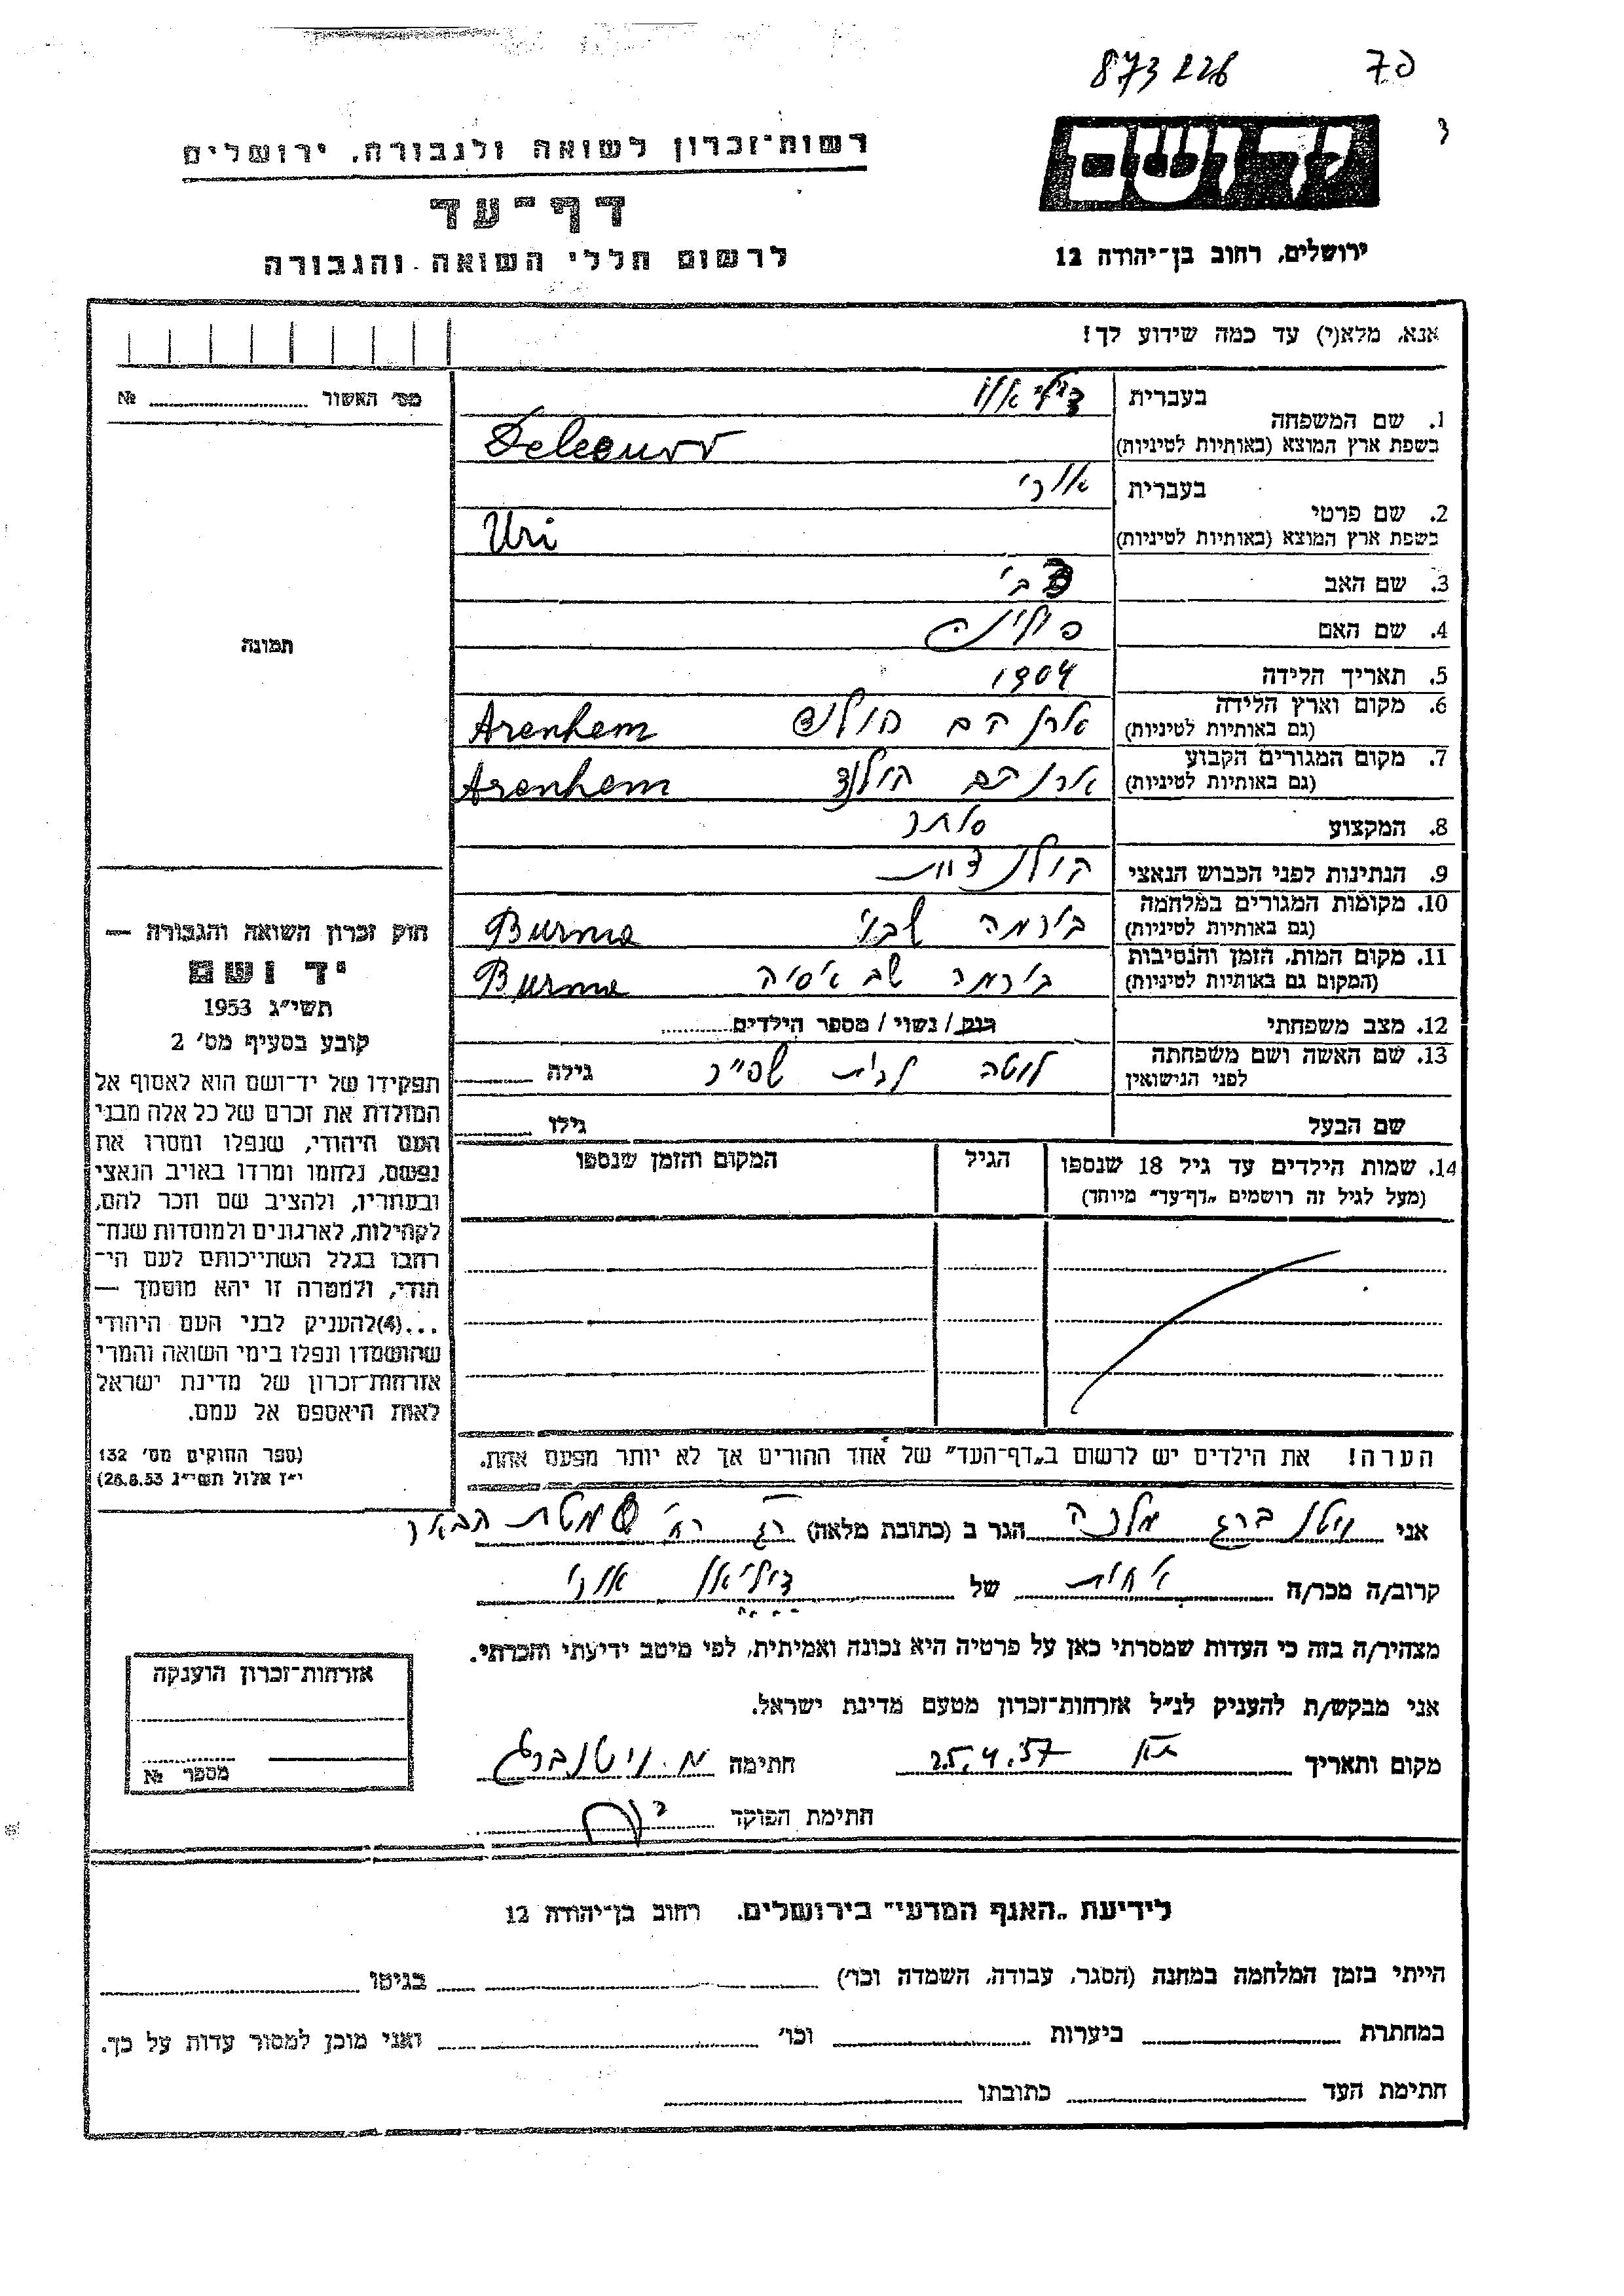 873226 70
רשות־זכרון לשואה ולגבורה, ירושלים
דף־עד
לרשום חללי השואה והגבורה
יד ושם
ירושלים, רחוב בן־יהודה 12
אנא, מלא(י) עד כמה שידוע לך!
מס׳ האשור № 
1. שם המשפחה
בעברית
בשפת ארץ המוצא (באותיות לטיניות)
2. שם פרטי
בעברית אורי
בשפת ארץ המוצא (באותיות לטיניות) Uri
3. שם האב צבי
4. שם האם
5. תאריך הלידה 1904
6. מקום וארץ הלידה ארנהם הולנד Arenhem
(גם באותיות לטיניות)
7. מקום המגורים הקבוע ארנהם הולנד Arenhem
(גם באותיות לטיניות)
8. המקצוע סוחר
9. הנתינות לפני הכבוש הנאצי הולנדית
10. מקומות המגורים במלחמה בורמה שבי Burma
(גם באותיות לטיניות)
11. מקום המות, הזמן והנסיבות בורמה Burma
(המקום גם באותיות לטיניות)
12. מצב משפחתי רווק / נשוי / מספר הילדים
13. שם האשה ושם משפחתה לוטה לבית גילה
לפני הנישואין
שם הבעל גילו
14. שמות הילדים עד גיל 18 שנספו הגיל המקום והזמן שנספו
(מעל לגיל זה רושמים „דף־עד״ מיוחד)
הערה! את הילדים יש לרשום ב„דף־העד״ של אחד ההורים אך לא יותר מפעם אחת.
תמונה
חוק זכרון השואה והגבורה —
יד ושם
תשי״ג 1953
קובע בסעיף מס׳ 2
תפקידו של יד־ושם הוא לאסוף אל
המולדת את זכרם של כל אלה מבני
העם היהודי, שנפלו ומסרו את
נפשם, נלחמו ומרדו באויב הנאצי
ובעוזריו, ולהציב שם וזכר להם,
לקהילות, לארגונים ולמוסדות שנח־
רבו בגלל השתייכותם לעם הי־
הודי, ולמטרה זו יהא מוסמך —
...(4) להעניק לבני העם היהודי
שהושמדו ונפלו בימי השואה והמרי
אזרחות־זכרון של מדינת ישראל
לאות היאספם אל עמם.
(ספר החוקים מס׳ 132
י״ז אלול תשי״ג 28.8.53)
אני ויטנברג מלכה הגר ב (כתובת מלאה)
קרוב/ה מכר/ה אחות של אורי
מצהיר/ה בזה כי העדות שמסרתי כאן על פרטיה היא נכונה ואמיתית, לפי מיטב ידיעתי והכרתי.
אני מבקש/ת להעניק לנ״ל אזרחות־זכרון מטעם מדינת ישראל.
מקום ותאריך 25.4.57 חתימה מ. ויטנברג
חתימת הפוקד
אזרחות־זכרון הוענקה
מספר №
לידיעת „האגף המדעי״ בירושלים, רחוב בן־יהודה 12
הייתי בזמן המלחמה במחנה (הסגר, עבודה, השמדה וכו׳) בגיטו
במחתרת ביערות וכו׳ ואני מוכן למסור עדות על כך.
חתימת העד כתובתו